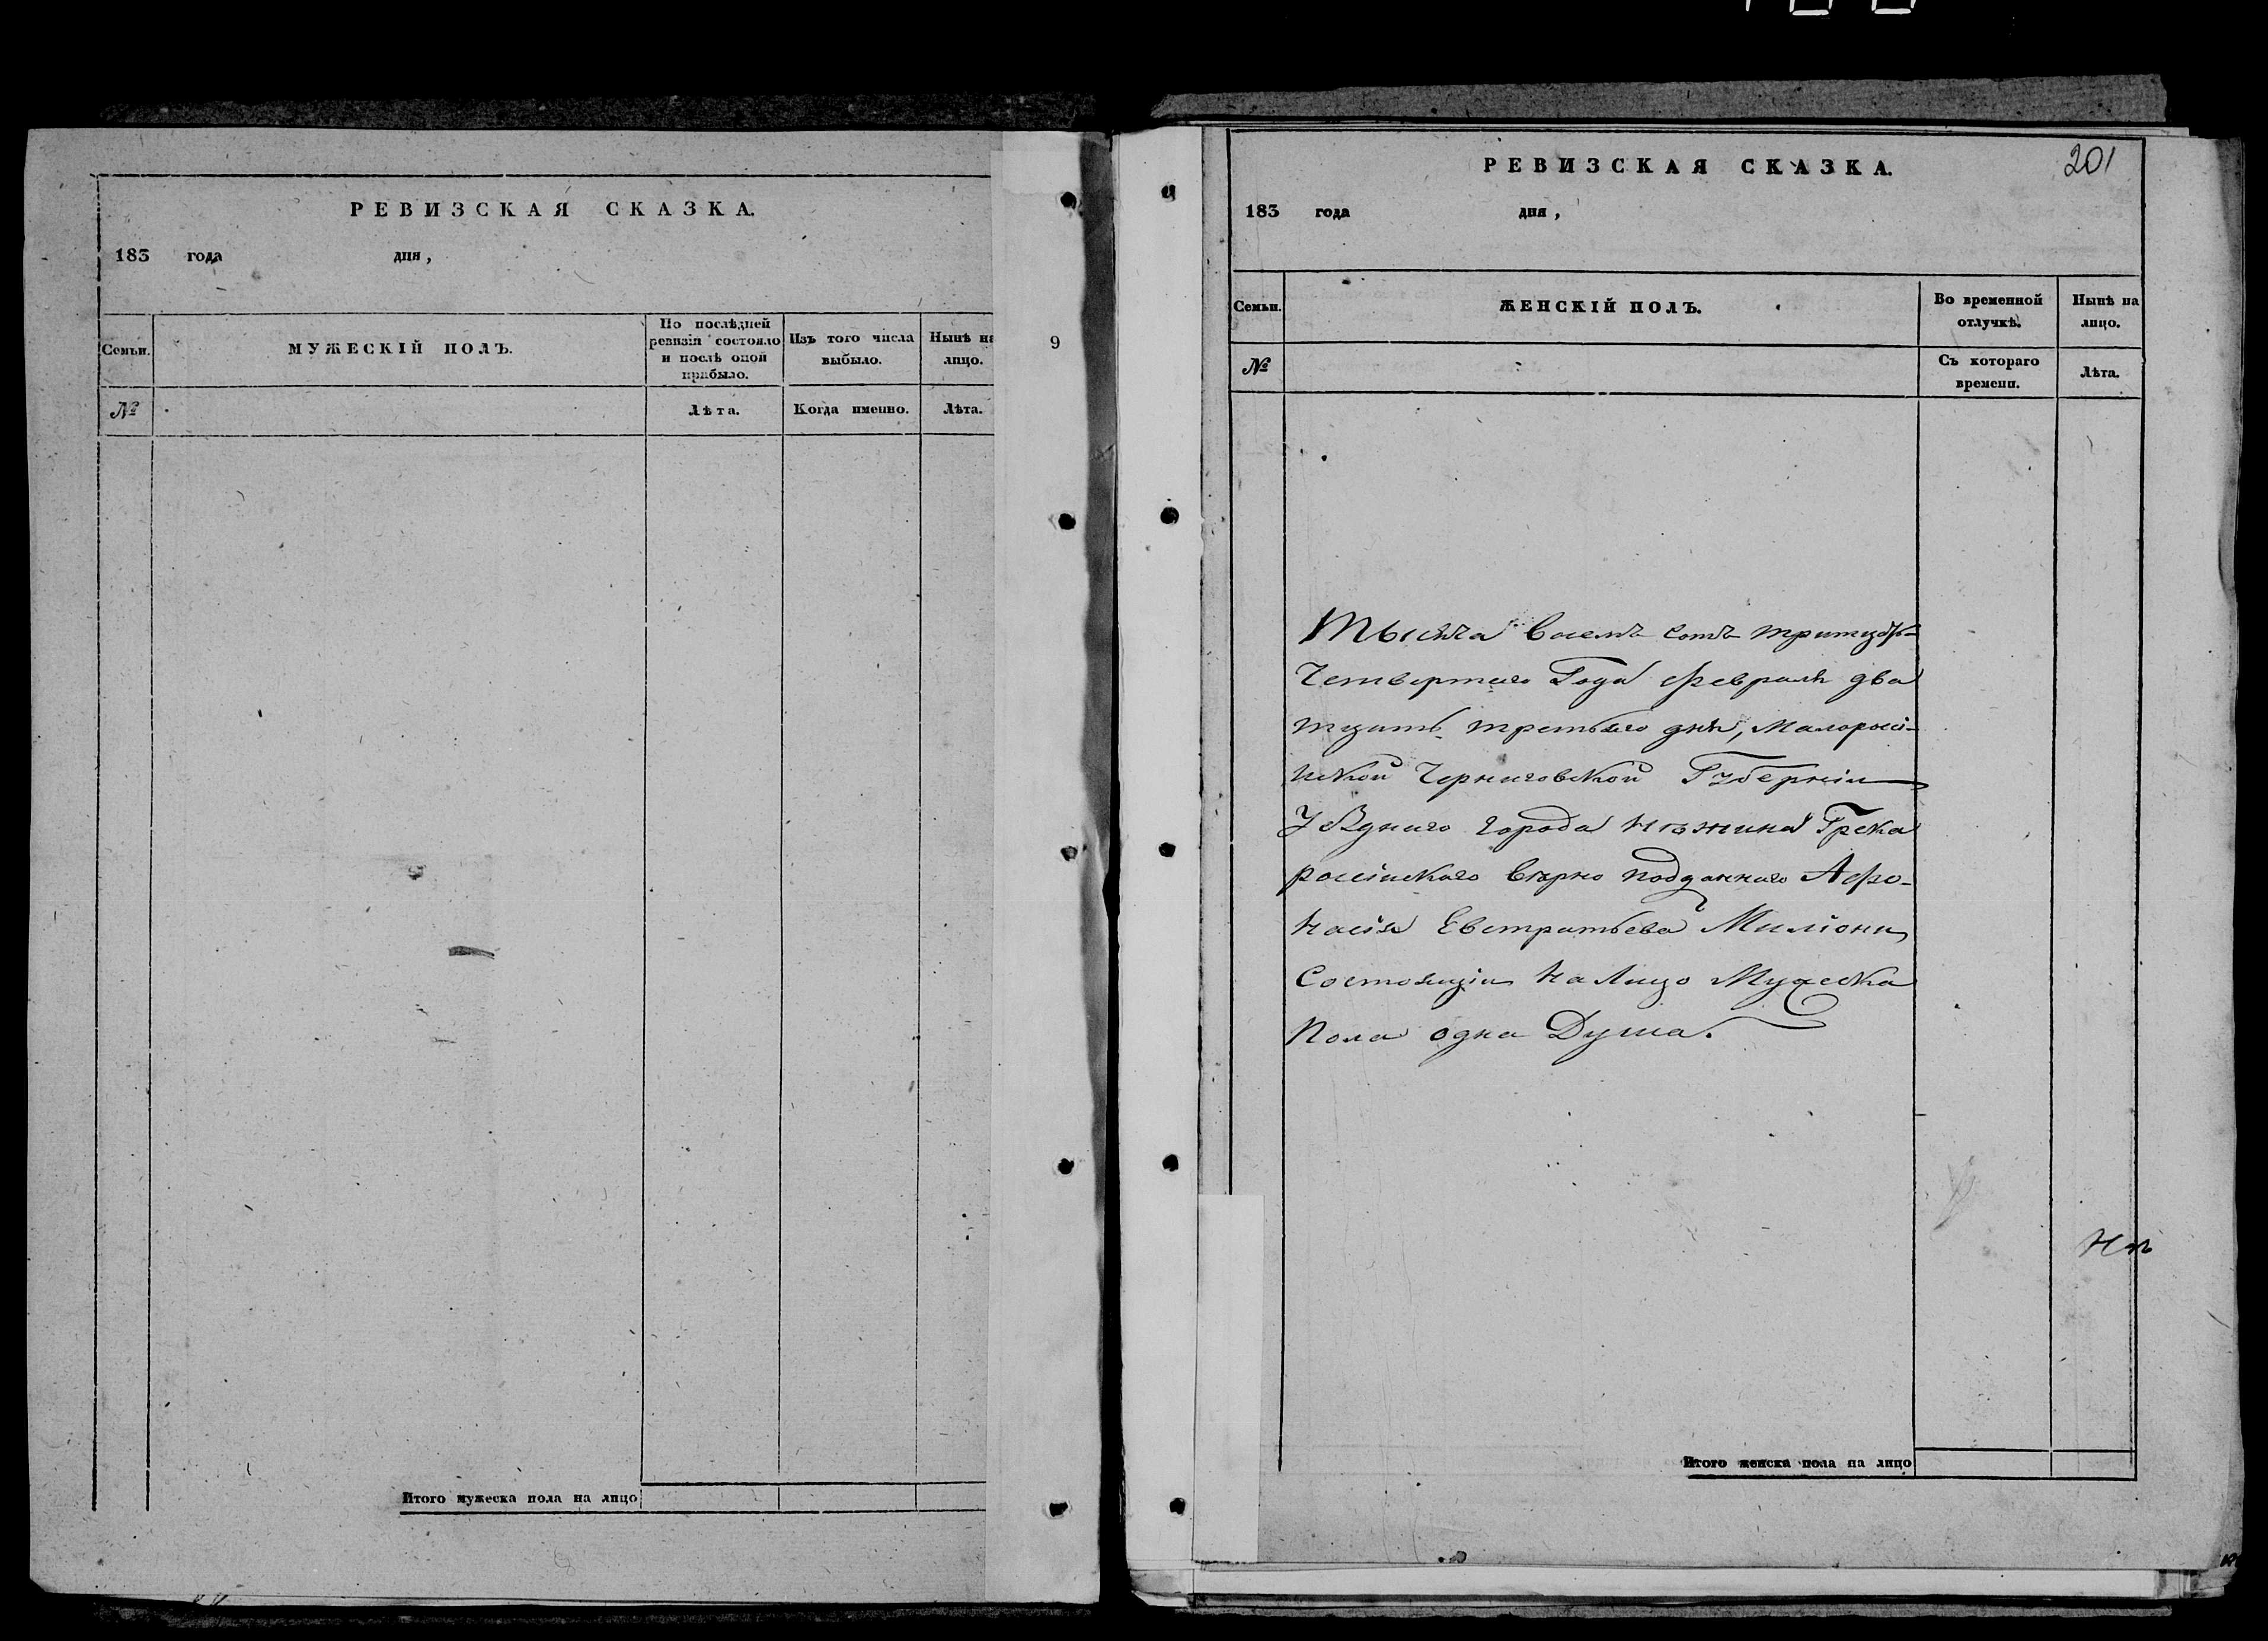 РЕВИЗСКАЯ СКАЗКА.
183 года дня,
Семьи.
МУЖЕСКІЙ ПОЛЪ.
По послѣдней
ревизіи состояло
и послѣ оной
прибыло.
Изъ того числа
выбыло.
Нынѣ на
лицо.
№
Лѣта.
Когда именно.
Лѣта.
Итого мужеска пола на лицо
9
РЕВИЗСКАЯ СКАЗКА.
201
183 года дня,
Семьи.
ЖЕНСКІЙ ПОЛЪ.
Во временной
отлучкѣ.
Нынѣ на
лицо.
№
Съ котораго
времени.
Лѣта.
Тысяча восемъ сотъ тритцать
Четвертаго Года февраля два
тцать третьяго дня, Малоросій-
ской Черниговской Губерніи
Уѣзднаго города Нѣжина Грека
російскаго вѣрно подданнаго Афо-
насія Евстратьева Миліони,
Состоящіи на Лицо Мужеска
Пола одна Душа.
Итого женска пола на лицо